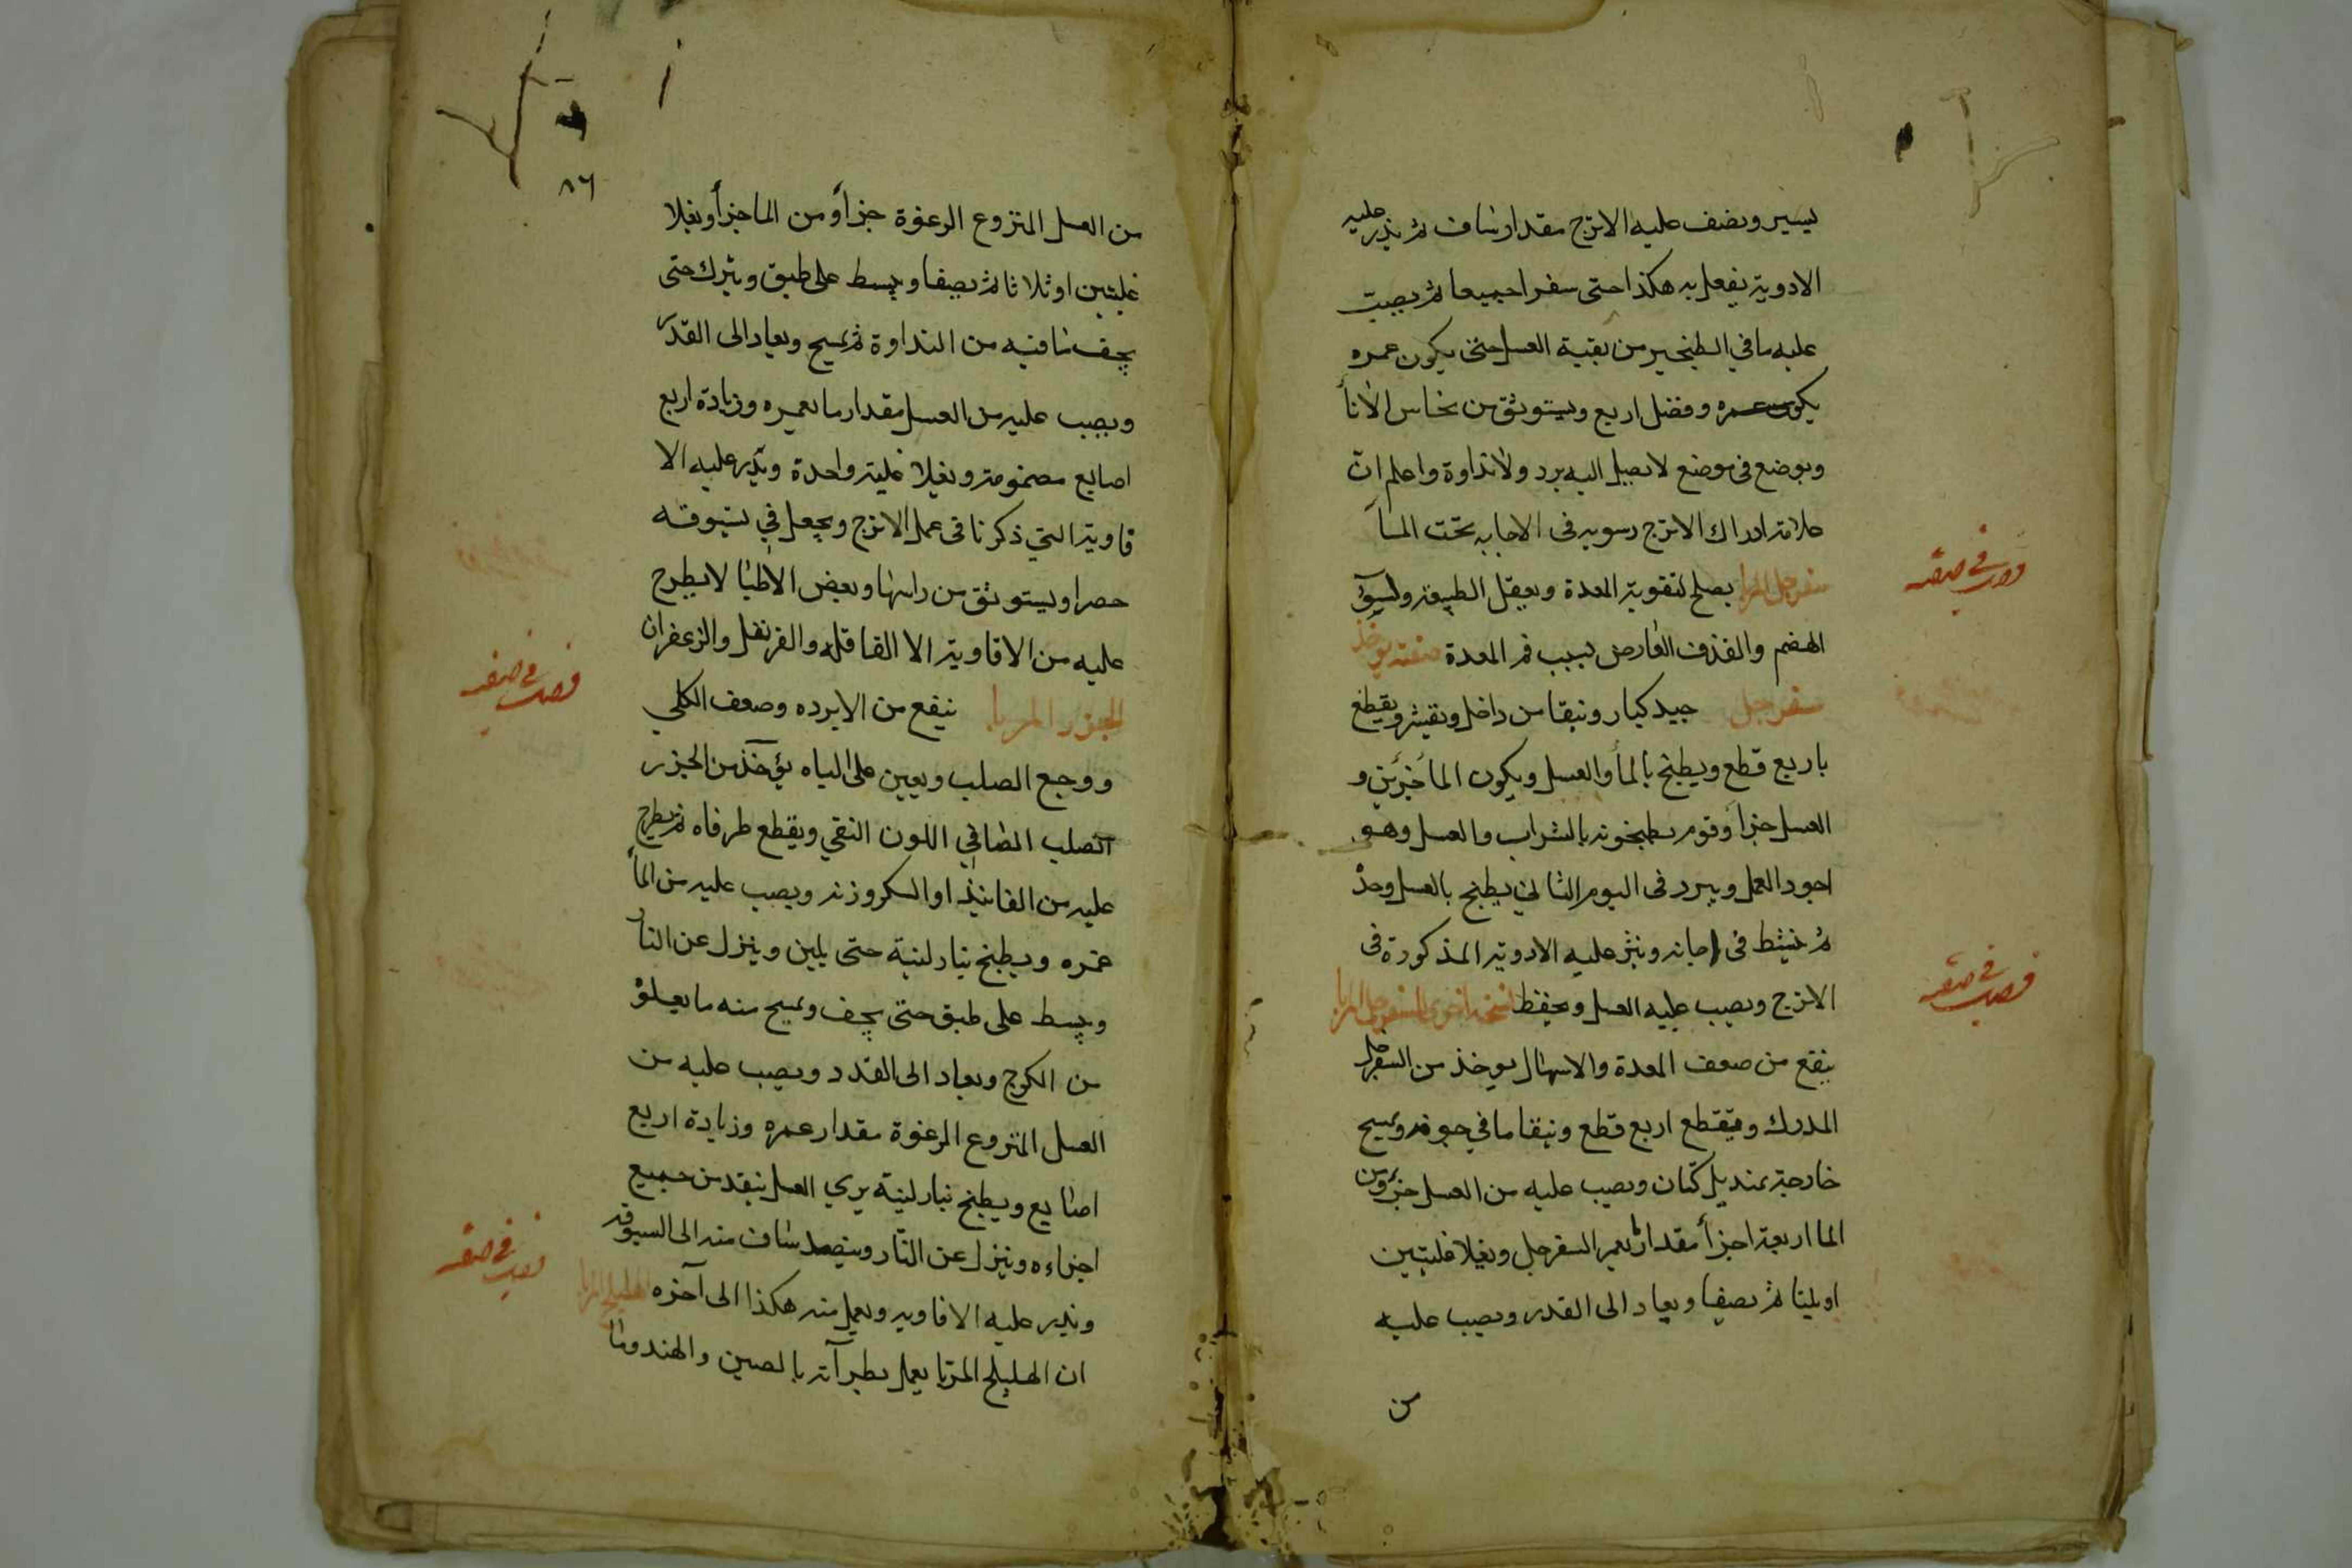 يسير ويضف عليه الاترج مقدار ساف ثم يذر عليه
الادوية يفعل به هكذا حتى سفرا جميعا ثم يصب
عليه ما في الطنجير من بقية العسل حتى يكون غمره
يكون غمره وفضل اربع ويستوثق من نحاس الاناأ
ويوضع في موضع لا يصل اليه برد ولا نداوة واعلم ان
علامة ادراك الاترج رسوبه في الاجابه تحت الماآ
سفرجل المربا يصلح لتقوية المعدة ويعقل الطبيعة ولسوء
الهضم والقذف العارض بسبب فم المعدة صنعته يوخذ
سفرجل جيد كبار وينقا من داخل ويقشر ويقطع
باربع قطع ويطبخ بالمأ والعسل ويكون الما جزئين و
العسل جزأ وقوم يطبخونه بالشراب والعسل وهو
اجود العمل ويبرد في اليوم الثاني يطبخ بالعسل وحده
ثم في اجانه وينثر عليه الادوية المذكورة في
الاترج ويصب عليه العسل ويحفظ نسخة اخرى للسفرجل المربا
ينفع من ضعف المعدة والاسهال يوخذ من السفرجل
المدرك ويقطع اربع قطع وينقا ما في جوفه ويمسح
خارجه بمنديل كتان ويصب عليه من العسل جزء ومن
الما اربعة اجزأ مقدار يغمر السفرجل ويغلا غليتين
او ثلثا ثم يصفا ويعاد الى القدر ويصب عليه
من
٨٦
من العسل المنزوع الرغوة جزأ ومن الما جزأ ويغلا
غليتين او ثلاثا ثم يصفا ويبسط على طبق ويترك حتى
يجف ما فيه من النداوة ثم يمسح ويعاد الى القدر
ويصب عليه من العسل مقدار ما يغمره وزيادة اربع
اصابع مضمومة ويغلا غلية واحدة ويذر عليه الا
فاوية التي ذكرنا في عمل الاترج ويجعل في بستوقه
خضرا ويستوثق من راسها وبعض الاطبا لا يطرح
عليه من الافاوية الا القاقلة والقرنفل والزعفران
الجزر المربا ينفع من الابرده وضعف الكلي
ووجع الصلب ويعين على الباه يؤخذ من الجزر
الصلب الصافي اللون النقي ويقطع طرفاه ثم يطرح
عليه من الفانيذ او السكر وزنه ويصب عليه من المأ
غمره ويطبخ بنار لينة حتى يلين وينزل عن النار
ويبسط على طبق حتى يجف ويمسح منه ما يعلوه
من الكرج ويعاد الى القدر ويصب عليه من
العسل المنزوع الرغوة مقدار غمره وزيادة اربع
اصابع ويطبخ بنار لينة يري العسل ينفد من جميع
اجزاءه وينزل عن النار وينضد ساف منه الى البستوقه
ويذر عليه الافاويه ويعمل منه هكذا الى آخره الهليلج المربا
ان الهليلج المربا يعمل بطرآته بالصين والهند وما